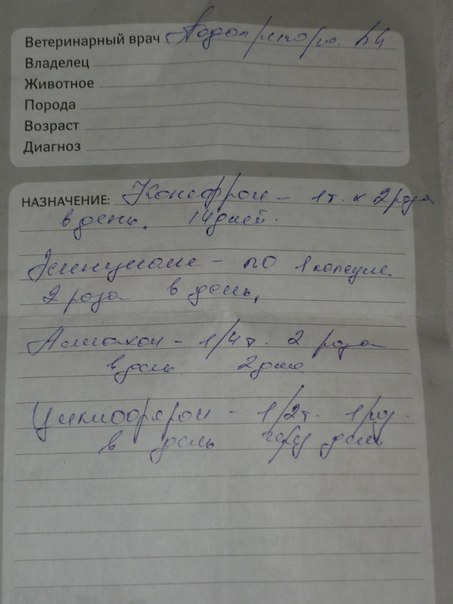 Ветеринарный врач
Владелец
Животное
Порода
Возраст
Диагноз
НАЗНАЧЕНИЕ: Канефрон - 1т. х 2 раза
в день. 14 дней.
- по 1 капсуле.
2 раза в день,
- 1/4 т. 2 раза
в день 2 дня
Циклоферон - 1/2т. 1 раз.
в день через день